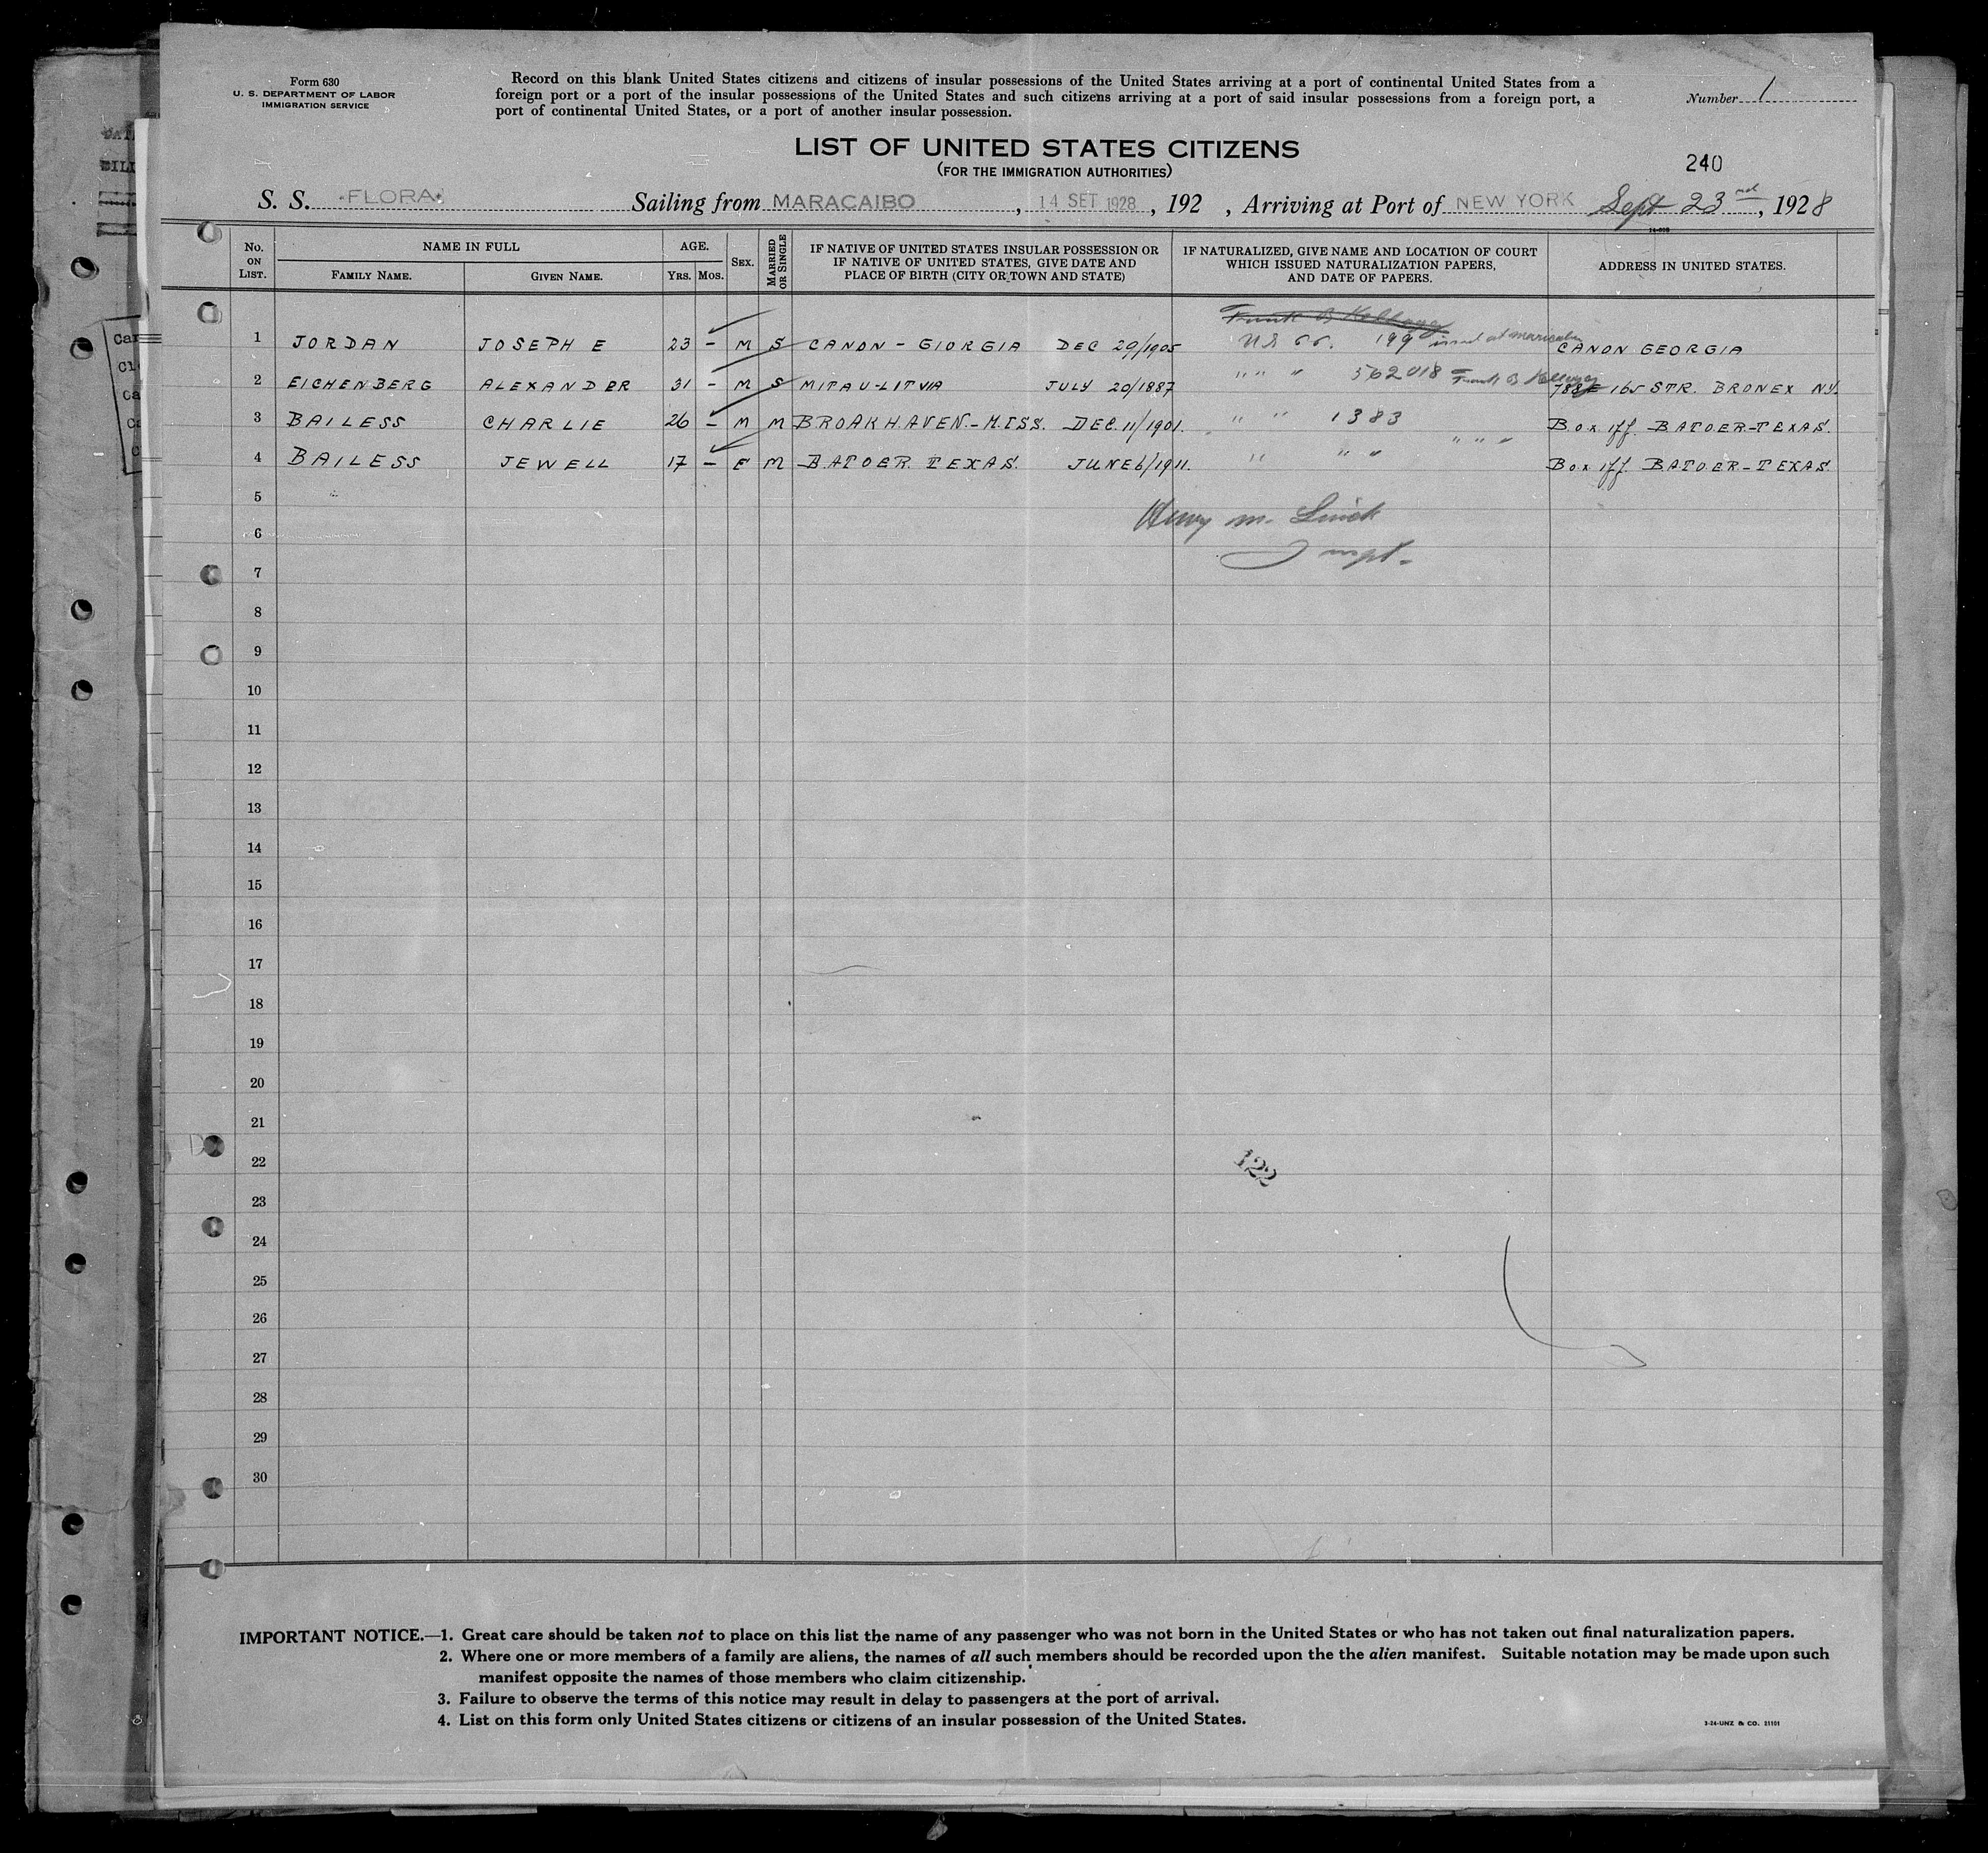 Form 630
U. S. DEPARTMENT OF LABOR
IMMIGRATION SERVICE
Record on this blank United States citizens and citizens of insular possessions of the United States arriving at a port of continental United States from a
foreign port or a port of the insular possessions of the United States and such citizens arriving at a port of said insular possessions from a foreign port, a
port of continental United States, or a port of another insular possession.
Number 1
LIST OF UNITED STATES CITIZENS
(FOR THE IMMIGRATION AUTHORITIES)
240
S. S. FLORA Sailing from MARACAIBO, 14 SET 1928, 192 , Arriving at Port of NEW YORK Sept 23rd, 1928
No. ON LIST. NAME IN FULL FAMILY NAME. GIVEN NAME. AGE. YRS. MOS. SEX. MARRIED OR SINGLE IF NATIVE OF UNITED STATES INSULAR POSSESSION OR IF NATIVE OF UNITED STATES, GIVE DATE AND PLACE OF BIRTH (CITY OR TOWN AND STATE) IF NATURALIZED, GIVE NAME AND LOCATION OF COURT WHICH ISSUED NATURALIZATION PAPERS, AND DATE OF PAPERS. ADDRESS IN UNITED STATES.
Frank B Kellogg
1 JORDAN JOSEPH E 23 - M S CANON - GIORGIA DEC 29/1905 199 issued at CANON GEORGIA
2 EICHENBERG ALEXANDER 31 - M S MITAU-LITVIA JULY 20/1887 " " " 562018 Frank B Kellogg 788 E 165 STR. BRONEX N.Y.
3 BAILESS CHARLIE 26 - M M BROAKHAVEN.-MISS. DEC. 11/1901. " " 1383 Box BATOER-TEXAS.
" " "
4 BAILESS JEWELL 17 - F M BATOER TEXAS. JUNE 6/1911. " " " Box BATOER-TEXAS.
5
Henry M.
6
Inspt.
7
8
9
10
11
12
13
14
15
16
17
18
19
20
21
22
122
23
24
25
26
27
28
29
30
IMPORTANT NOTICE.—1. Great care should be taken not to place on this list the name of any passenger who was not born in the United States or who has not taken out final naturalization papers.
2. Where one or more members of a family are aliens, the names of all such members should be recorded upon the the alien manifest. Suitable notation may be made upon such
manifest opposite the names of those members who claim citizenship.
3. Failure to observe the terms of this notice may result in delay to passengers at the port of arrival.
4. List on this form only United States citizens or citizens of an insular possession of the United States.
3-24-UNZ & CO. 21101